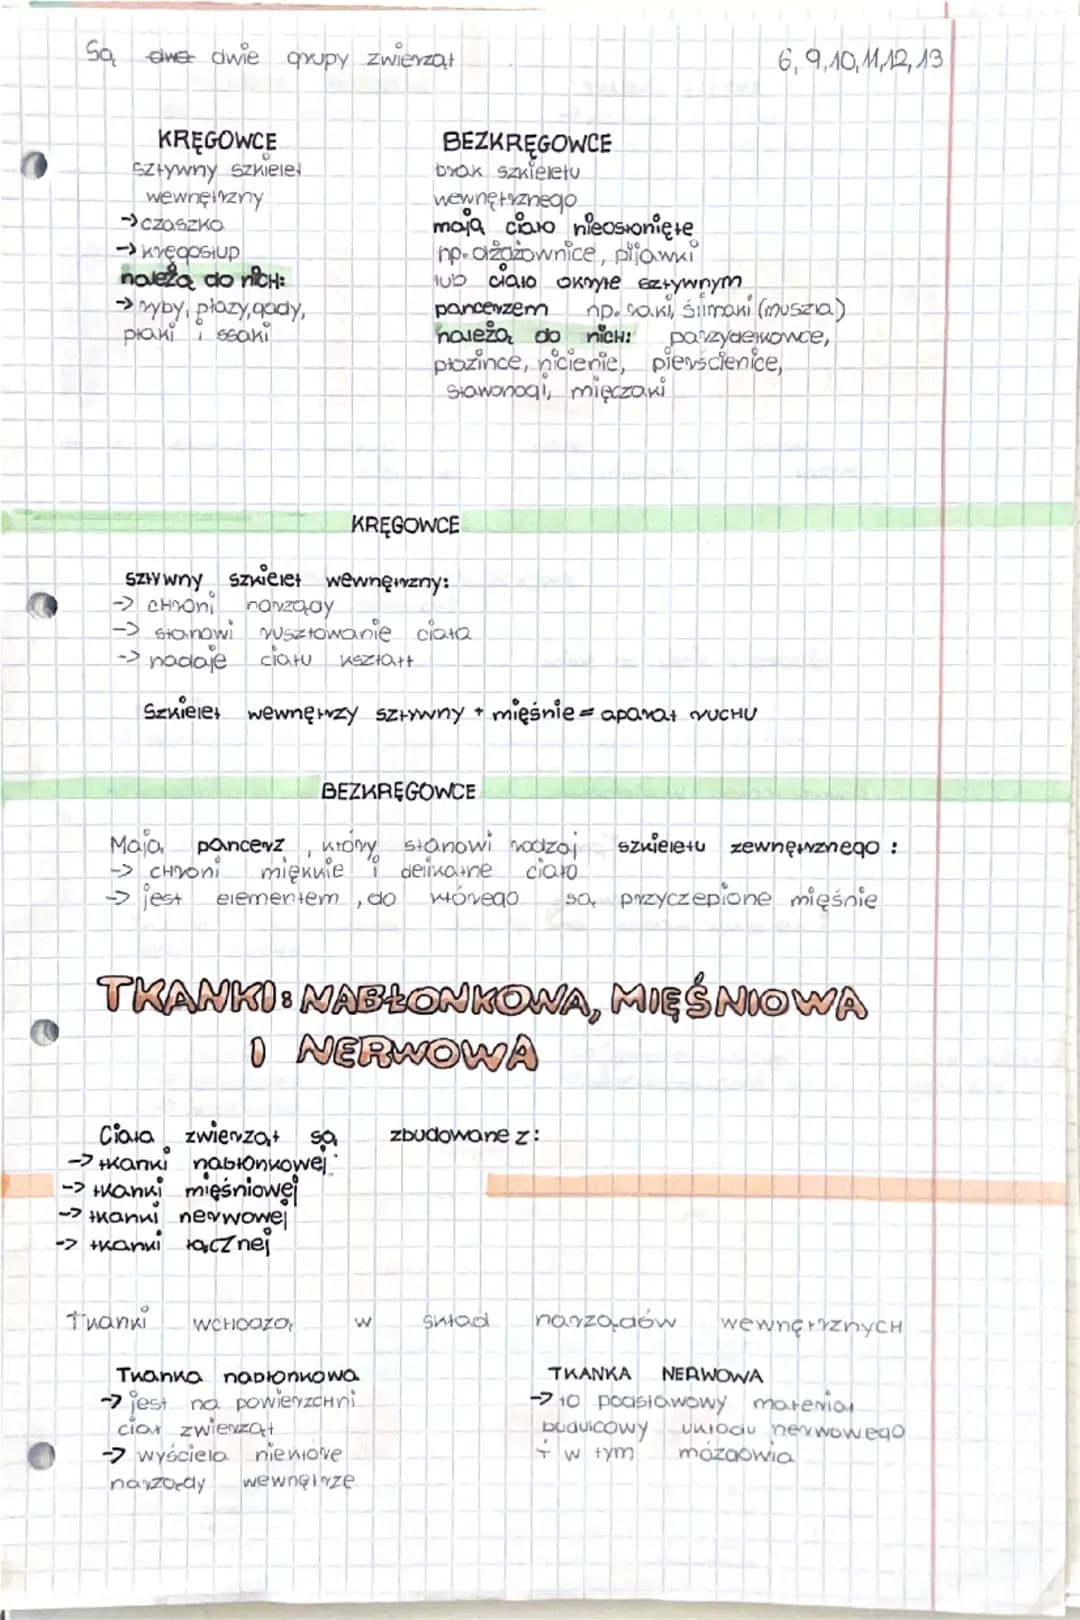 Są dwa dwie grupy zwierząt
6, 9,10,11,12,13
KRĘGOWCE
sztywny szkielet
wewnętrzny
→czaszka
→kręgosłup
należą do nich:
→ryby, płazy, gady,
ptaki i ssaki
BEZKRĘGOWCE
brak szkieletu
wewnętrznego
mają ciało nieosłonięte
np. dżdżownice, pijawki
lub ciało okryte sztywnym
pancerzem np. raki, ślimaki (muszla)
należą do nich: parzydełkowce,
płazińce, nicienie, pierścienice,
stawonogi, mięczaki
KRĘGOWCE
sztywny szkielet wewnętrzny:
-> chroni narządy
-> stanowi rusztowanie ciała
-> nadaje ciału kształt
Szkielet wewnętrzy sztywny + mięśnie = aparat ruchu
BEZKRĘGOWCE
Mają pancerz, który stanowi rodzaj szkieletu zewnętrznego:
-> chroni miękkie i delikatne ciało
-> jest elementem, do którego są przyczepione mięśnie
TKANKI: NABŁONKOWA, MIĘŚNIOWA
I NERWOWA
Ciała zwierząt są zbudowane z:
-> tkanki nabłonkowej
-> tkanki mięśniowej
-> tkanki nerwowej
-> tkanki łącznej
Tkanki wchodzą w skład narządów wewnętrznych
Tkanka nabłonkowa
-> jest na powierzchni
ciał zwierząt
-> wyściela niektóre
narządy wewnętrze
TKANKA NERWOWA
-> to podstawowy materiał
budulcowy układu nerwowego
+ w tym mózgowia